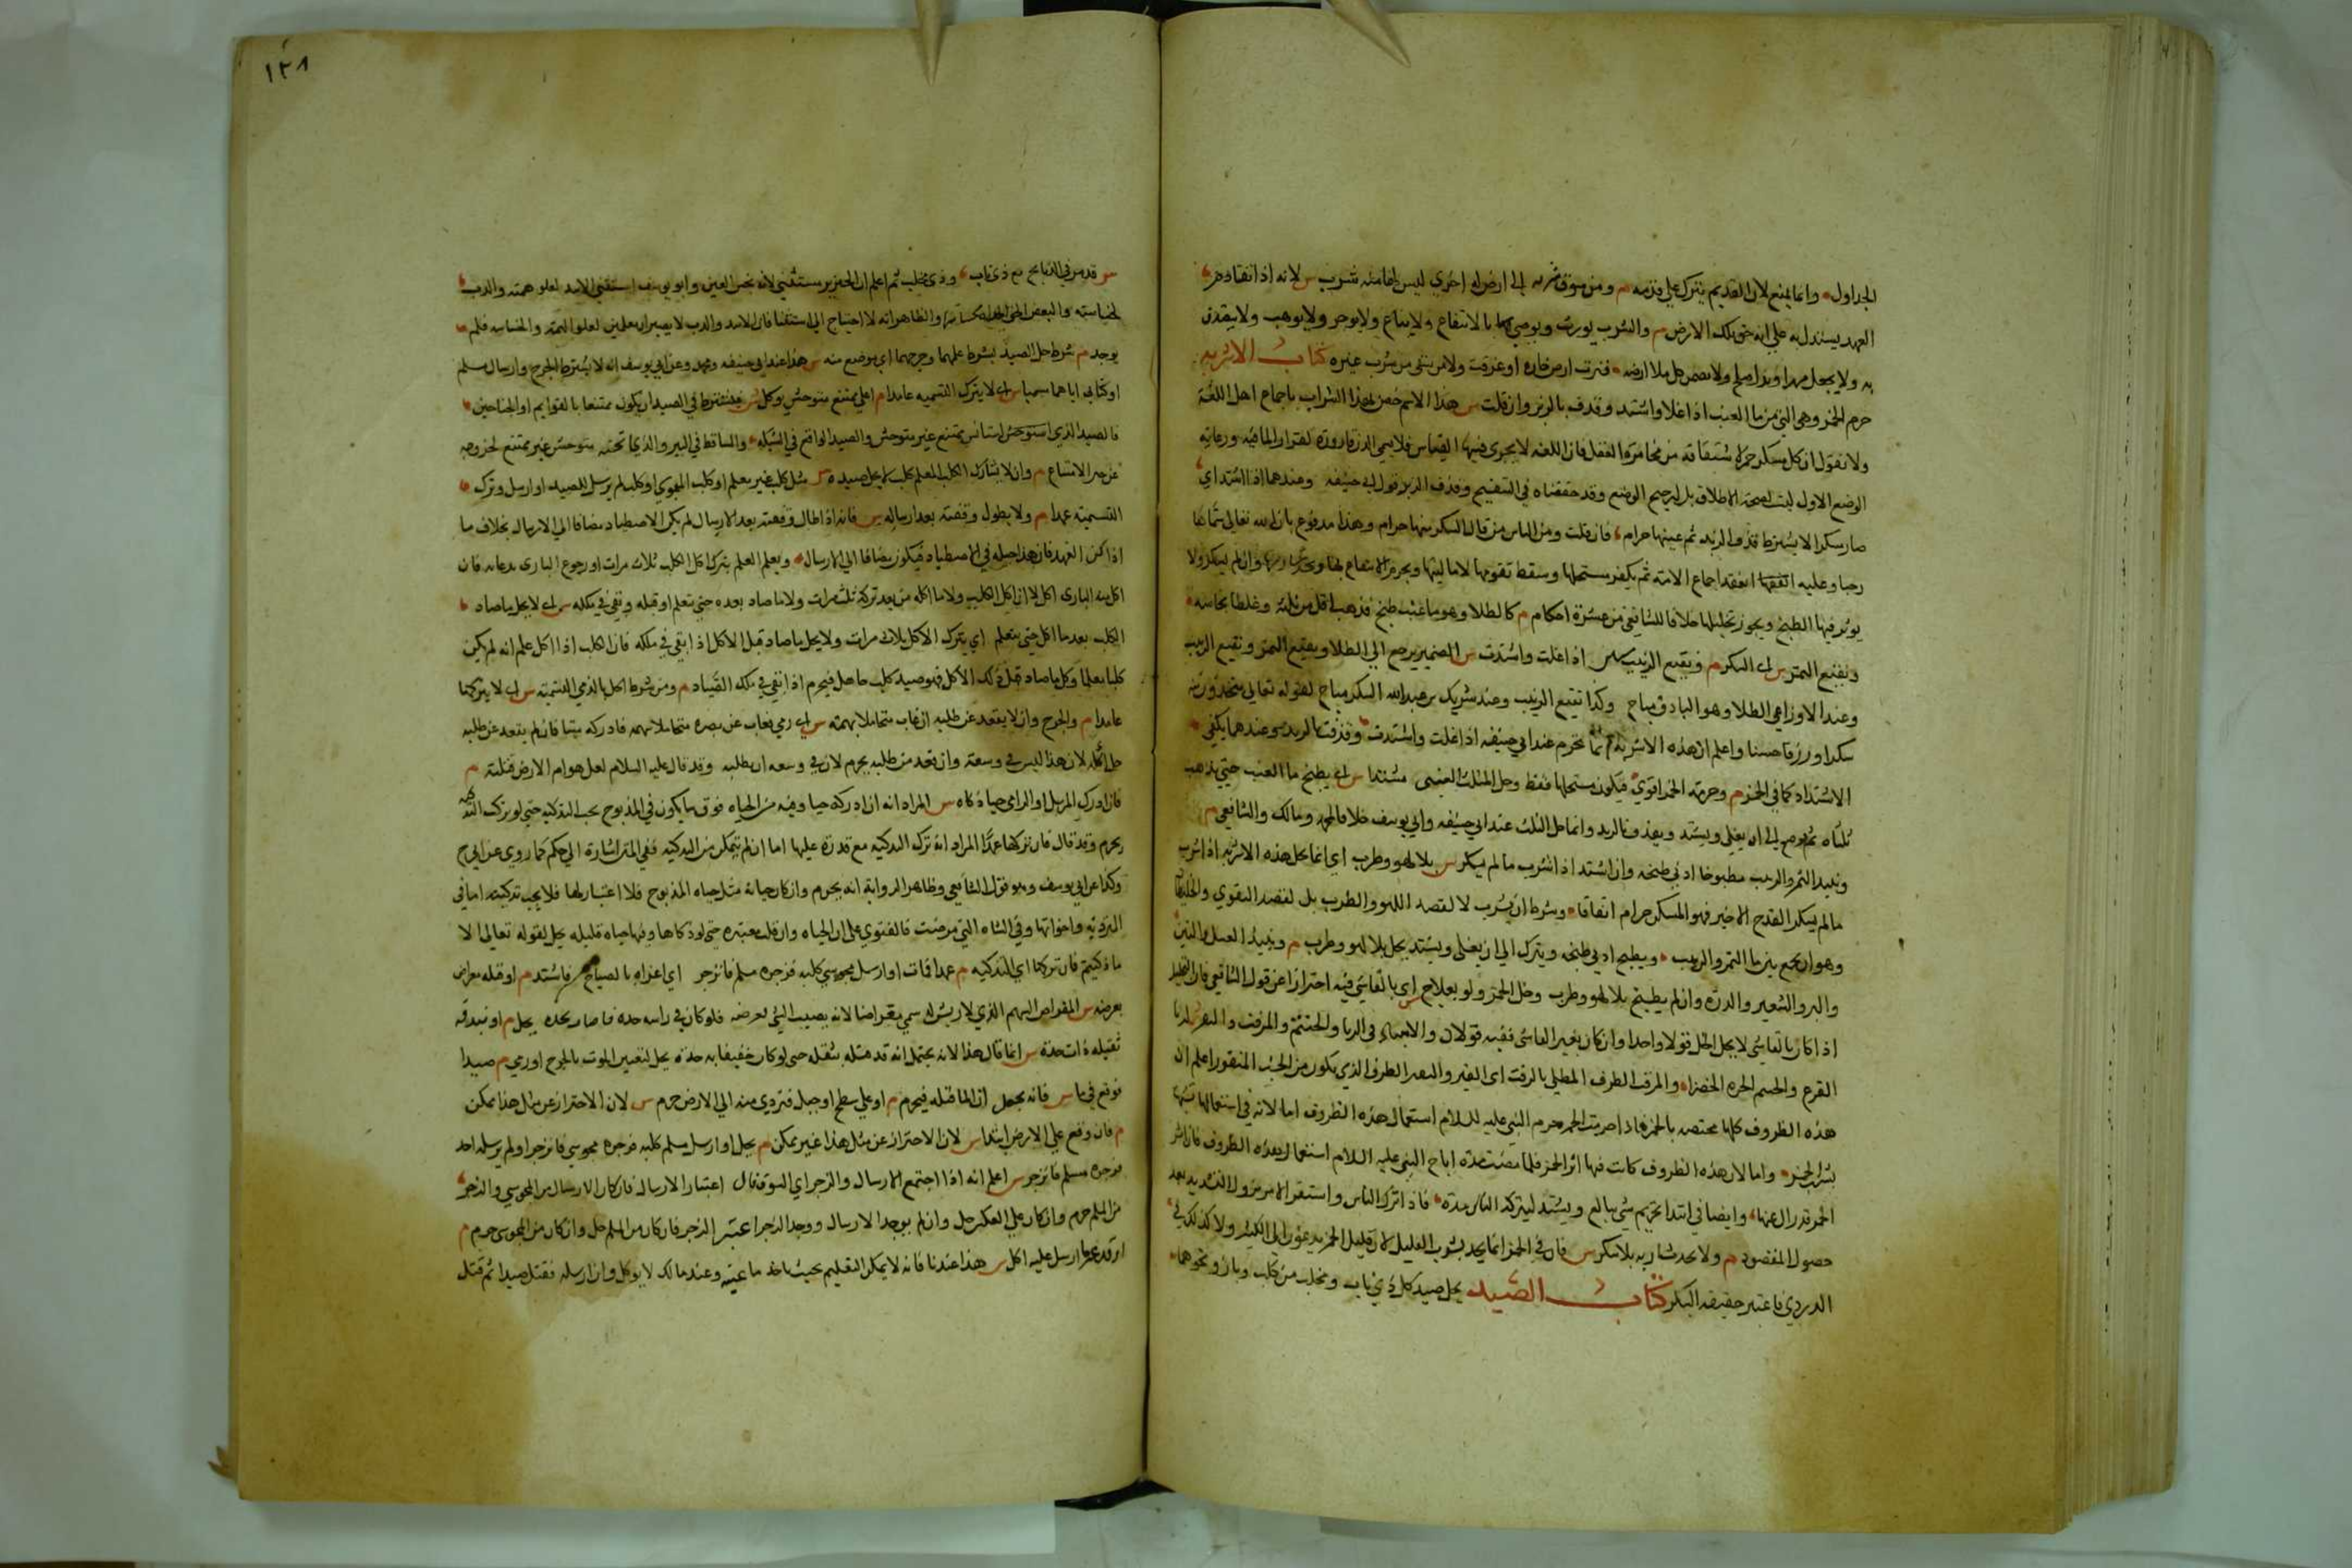 الجداول وانما يمنع لان القديم يترك علي قدمه م ومن سوق شربه الى ارض له اخري ليس لها منه شرب س لانه اذا تقادم
العهد يستدل به علي انه حق تلك الارض م والشرب يورث ويوصي بالانتفاع ولا يباع ولا يوجر ولا يوهب ولا يتصدق
به ولا يجعل مهرا وبدل صلح ولا يضمن من ملا ارضه فنزت ارض جاره او غرقت ولا من سقى من شرب غيره كتاب الاشربه
حرم الخمر وهي التي من ما العنب اذا غلا واشتد وقذف بالزبد وان قلت س هذا الاسم خص بهذا الشراب باجماع اهل اللغة
ولا نقول ان كل مسكر خمر لاشتقاقه من مخامرة العقل فان اللغه لا يجري فيها القياس فلا يسمي الدن قاروره لقرار الما فيه ورعاية
الوضع الاول ليست لصحة الاطلاق بل لترجيح الوضع وقد حققناه في التنقيح وقذف الزبد قول ابي حنيفه وعندهما اذا اشتد اي
صار مسكرا لا يشترط قذف الزبد ثم عينها حرام فان قلت ومن الناس من قال السكر منها حرام وهذا مدفوع بان الله تعالى سماها
رجسا وعليه انعقد اجماع الامة ثم يكفر مستحلها وسقط تقومها لا ماليتها ويحرم الانتفاع بها وان لم يسكر ولا
يوثر فيها الطبخ ويجوز تخليلها خلافا للشافعي من عشرة احكام م كالطلا وهو ما عنب طبخ فذهب اقل من ثلثه وغلظا نجاسه
ونقيع التمر س اى السكر م ونقيع الزبيب اذا غلت واشتدت س الضمير يرجع الي الطلا ونقيع التمر ونقيع الزبيب
وعند الاوزاعي الطلا وهو الباذق مباح وكذا نقيع الزبيب وعند شريك بن عبد الله السكر مباح لقوله تعالى تتخذون منه
سكرا ورزقا حسنا واعلم ان هذه الاشربه انما تحرم عند ابي حنيفه اذا غلت واشتدت وقذفت بالزبد وعندهما يكفي
الاشتداد كما في الخمر م وحرمة الخمر اقوي فيكفر مستحلها فقط وحل المثلث العنبى مشتدا س اى يطبخ ما العنب حتي يذهب
ثلثاه ثم يوضع الى ان يغلى ويشتد ويقذف بالزبد وانما حل المثلث عند ابي حنيفه وابي يوسف خلافا لمحمد ومالك والشافعي م
ونبيذ التمر والزبيب مطبوخا ادني طبخه وان اشتد اذا شرب ما لم يسكر س بلا لهو وطرب اي انما يحل هذه الاشربه اذا شرب
ما لم يسكر القدح الاخير فهو المسكر حرام اتفاقا وشرط ان يشرب لا لقصد اللهو والطرب بل لقصد التقوي والخليطان
وهو ان يجمع بين ما التمر والزبيب ويطبخ ادني طبخه ويترك الي ان يغلى ويشتد يحل بلا لهو وطرب م ونبيذ العسل والتين
والبر والشعير والذره وان لم يطبخ بلا لهو وطرب وخل الخمر ولو بعلاج اي بالقا شي فيه احترازا عن قول الشافعي فان التخليل
اذا كان بالقا شي لا يحل الخل قولا واحدا وان كان بغير القا شي ففيه قولان والانتباذ في الدبا والحنتم والمزفت والنقير الدبا
القرع والحنتم الجره الخضرا والمزفت الظرف المطلي بالزفت اى القير والنقير الظرف الذي يكون من الخشب المنقور اعلم ان
هذه الظروف كانت مختصه بالخمر فاذا حرمت الخمر حرم النبي عليه السلام استعمال هذه الظروف اما لان في استعمالها تشبها
بشرب الخمر واما لان هذه الظروف كانت فيها اثر الخمر فلما مضت مدة اباح النبي عليه السلام استعمال هذه الظروف فان اثر
الخمر قد زال عنها وايضا في ابتدا تحريم شي يبالغ ويشتد ليتركه الناس مرة فاذا ترك الناس واستقر الامر يزول التشديد بعد
حصول المقصود م ولا يحد شاربه بلا سكر س فان في الخمر انما يحد بشرب القليل لان قليل الخمر يدعو الى الكثير ولا كذلك في
الدردي فاعتبر حقيقه السكر كتاب الصيد يحل صيد كل ذي ناب ومخلب من كلب وباز ونحوهما
١٢٨
س قد مر في الذبايح مع ذي ناب وذي مخلب ثم اعلم ان الخنزير مستثني لانه نجس العين وابو يوسف استثنى الاسد لعلو همته والدب
لخساسته والبعض الحق الحداة والظاهر انه لا احتياج الى استثنا فان الاسد والدب لا يصيران معلمين لعلو الهمة والخساسه فلم
يوجد م شرط حل الصيد بشرط علمهما وجرحهما اي موضع منه س هذا عند ابي حنيفه ومحمد وعن ابي يوسف انه لا يشترط الجرح وارسال مسلم
او كتابي اياهما مسميا س اى لا يترك التسميه عامدا م على ممتنع متوحش يوكل س يشترط في الصيد ان يكون ممتنعا بالقوايم او الجناحين
فالصيد الذي استانس ممتنع غير متوحش والصيد الواقع في الشبكه والساقط في البير والذي اثخنه متوحش غير ممتنع لخروجه
عن حيز الامتناع م وان لا يشارك الكلب المعلم كلب لا يحل صيده س مثل كلب غير معلم او كلب المجوسي او كلب لم يرسل للصيد او ارسل وترك
التسمية عمدا م ولا يطول وقفته بعد ارساله س فانه اذا طال وقفته بعد الارسال لم يكن الاصطياد مضافا الي الارسال بخلاف ما
اذا كمن الفهد فان هذا حيله في الاصطياد فيكون مضافا الي الارسال ويعلم المعلم بترك اكل الكلب ثلاث مرات او رجوع البازى بدعائه فان
اكل منه البازى اكل لا ان اكل الكلب ولا ما اكله من بعد تركه ثلث مرات ولا ما صاد بعده حتى يتعلم او قبله وبقي في ملكه س اى لا يحل ما صاد
الكلب بعد ما اكل حتي يتعلم اي يترك الاكل ثلاث مرات ولا يحل ما صاد قبل الاكل اذا بقي في ملكه فان الكلب اذا اكل علم انه لم يكن
كلبا معلما وكل ما صاد قبل ذلك الاكل فهو صيد كلب جاهل فيحرم اذا بقي في ملك الصياد م ومن شرط الحل بالرمي التسميه س اى لا يتركها
عامدا م والجرح وان لا يقعد عن طلبه ان غاب متحاملا بسهمه س اى رمي فغاب عن بصره متحاملا بسهمه فادركه ميتا فان لم يقعد عن طلبه
حل اكله لان هذا ليس في وسعه وان قعد عن طلبه يحرم لان في وسعه ان يطلبه وقد قال عليه السلام لعل هوام الارض قتلته م
فان ادرك المرسل او الرامي حيا ذكاه س المراد انه ان ادركه حيا وفيه من الحياه فوق ما يكون في المذبوح يجب التذكيه حتي لو ترك التذكيه
يحرم وقد قال فان تركها عمدا المراد انه ترك التذكيه مع قدرته عليها اما ان لم يتمكن من التذكيه ففي المتن اشارة الي حكمه كما روي عن ابي ح
وكذا عن ابي يوسف وهو قول الشافعي وظاهر الرواية انه يحرم وان كان حياته مثل حياه المذبوح فلا اعتبار لها فلا يجب تذكيته اما في
المتردية واخواتها وفي الشاه التي مرضت فالفتوي على ان الحياه وان قلت معتبره حتي لو ذكاها وفيها حياه قليله يحل لقوله تعالى الا
ما ذكيتم فان تركها اي التذكيه م عمدا فمات او ارسل مجوسي كلبه فزجره مسلم فانزجر اي اغراه بالصياح فاشتد م او قتله معراض
بعرضه س المعراض السهم الذي لا ريش له سمي معراضا لانه يصيب الشئ بعرضه فلو كان في راسه حده فاصاب بحده يحل م او بندقه
ثقيله ذات حدة س انما قال هذا لانه يحتمل انه قد قتله بثقله حتى لو كان خفيفا به حدة يحل لتعين الموت بالجرح او رمي م صيدا
فوقع في ما س فانه يحتمل ان الما قتله فيحرم م او علي سطح او جبل فتردي منه الي الارض حرم س لان الاحتراز عن مثل هذا ممكن
م فان وقع علي الارض ابتدا س لان الاحتراز عن مثل هذا غير ممكن م يحل او ارسل مسلم كلبه فزجره مجوسي فانزجر او لم يرسله احد
فزجره مسلم فانزجر س اعلم انه اذا اجتمع الارسال والزجر اي السوق فال اعتبار الارسال فان كان الارسال من المجوسي والزجر
من المسلم حرم وان كان علي العكس حل وان لم يوجد الارسال ووجد الزجر اعتبر الزجر فان كان من المسلم حل وان كان من المجوسي حرم م
ارسل عليه اكل س هذا عندنا فانه لا يمكن التعليم بحيث ياخذ ما عينه وعند مالك لا يوكل وان ارسله فقتل صيدا ثم قتل